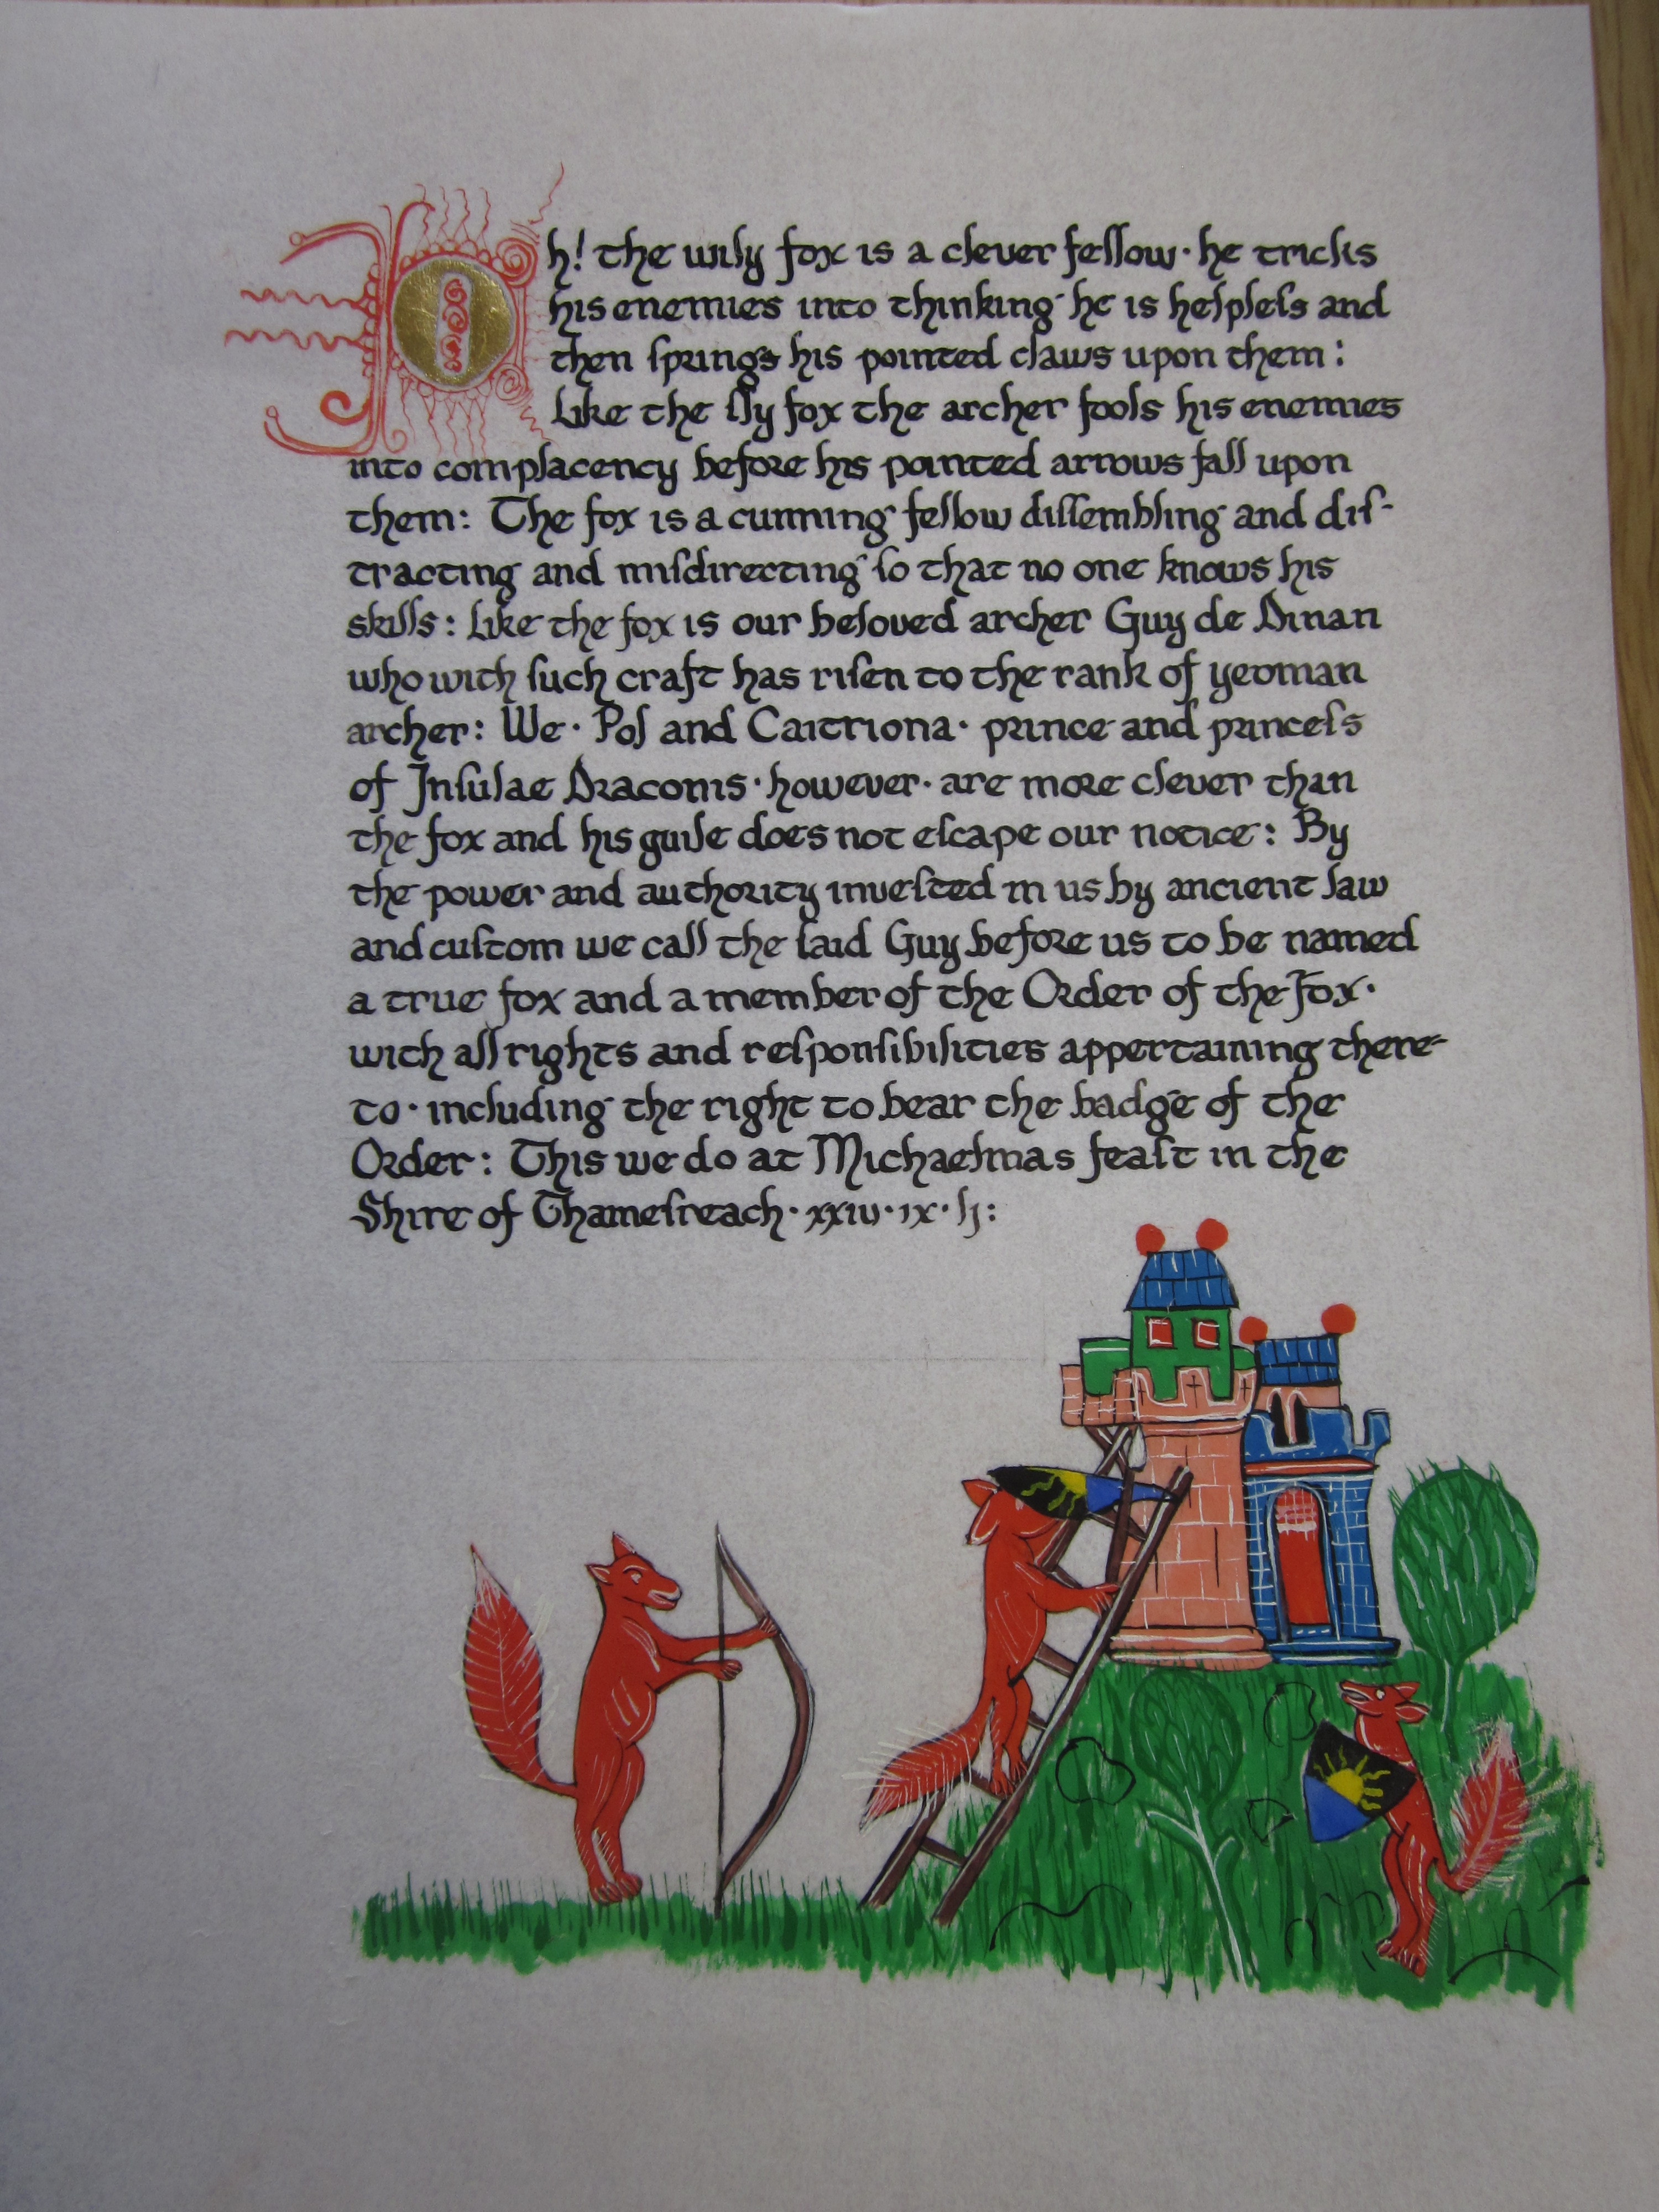 Oh! the wily fox is a clever fellow· he tricks
his enemies into thinking he is helpless and
then springs his pointed claws upon them:
Like the sly fox the archer fools his enemies
into complacency before his pointed arrows fall upon
them: The fox is a cunning fellow dissembling and dis-
tracting and misdirecting so that no one knows his
skills: Like the fox is our beloved archer Guy de Dinan
who with such craft has risen to the rank of yeoman
archer: We· Pol and Caitriona· prince and princess
of Insulae Draconis· however· are more clever than
the fox and his guile does not escape our notice: By
the power and authority invested in us by ancient law
and custom we call the said Guy before us to be named
a true fox and a member of the Order of the Fox·
with all rights and responsibilities appertaining there-
to· including the right to bear the badge of the
Order: This we do at Michaelmas feast in the
Shire of Thamesreach· xxiv· ix· lj: